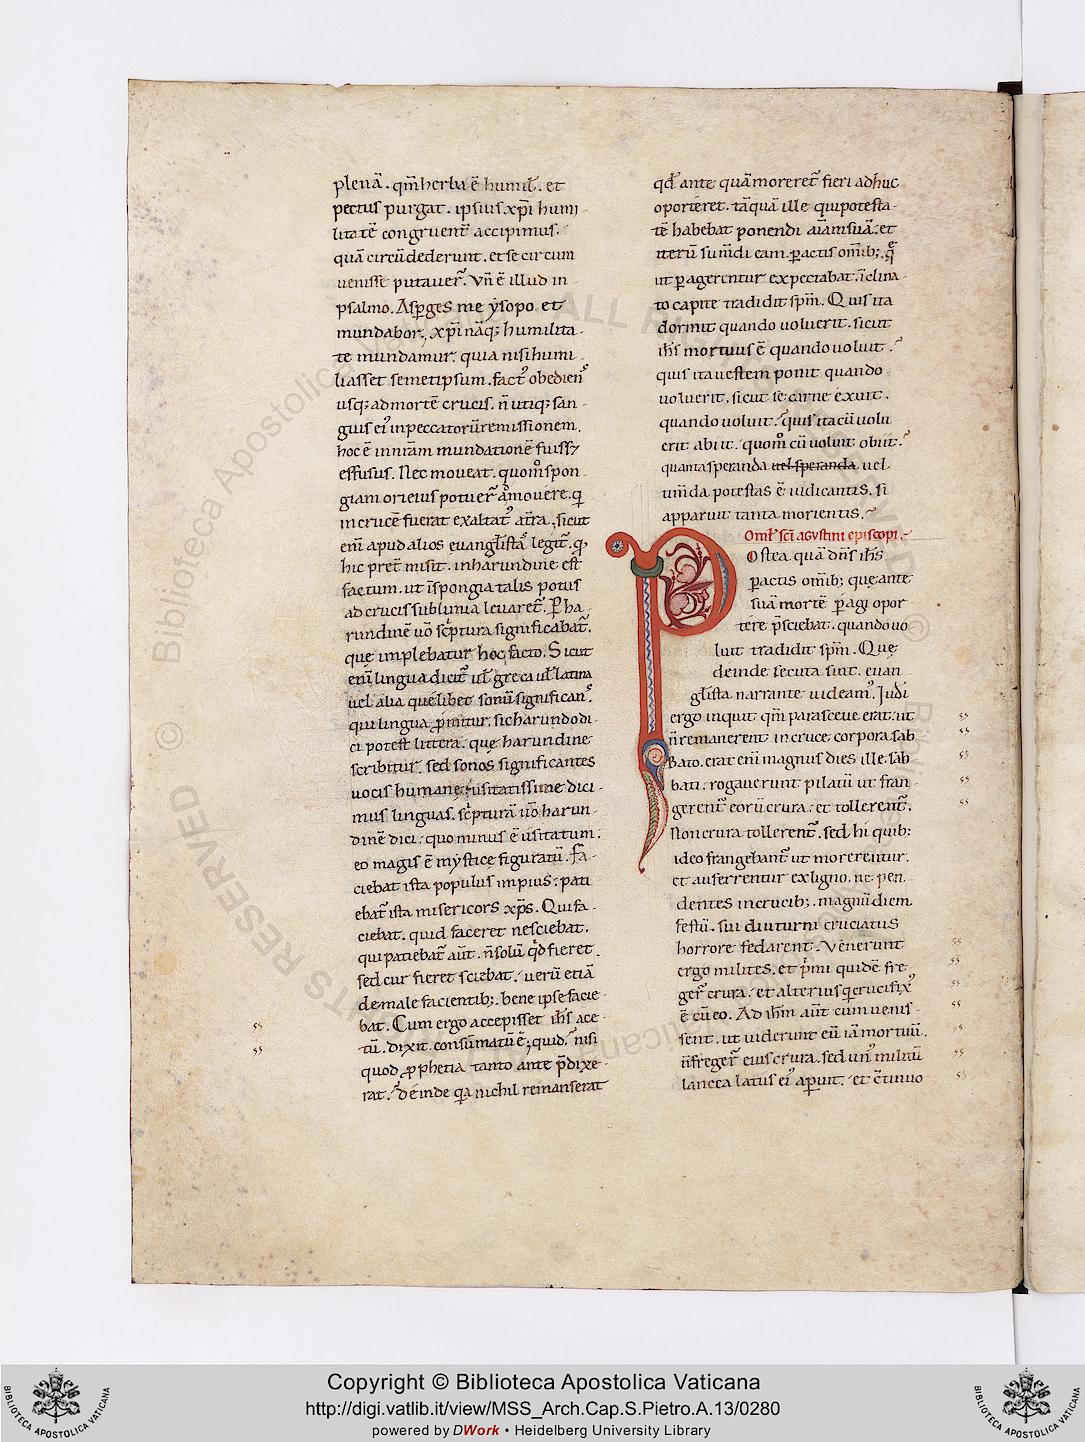 plenā. qm̄ herba ē humil̄. et
pectus purgat. ipsius xp̄i humi
litatē congruent̄ accipimus.
quā circūdederunt. et se circum
uenisse putauer̄. Vn̄ ē illud in
psalmo. Asp̱ges me ẏsopo et
mundabor. xp̄i nāq; humilita-
te mundamur. quia nisi humi-
liasset semetipsum. fact᾿ obedien᾿
usq; ad mortē crucis. n̄ utiq; san-
guis ei᾿ in peccatorū remissionem.
hoc ē in nr̄am mundationē fuiss&
effusus. Nec moueat. quom̊ spon-
giam ori eius potuer̄ am̊ouere. qi
in crucē fuerat exaltat᾿ a tr̄a. sicut
eni᷑ apud alios euangl̄ista᾿ legit̄. q᾿
hic pret̄misit. in harundine est
factum. ut ī spongia talis potus
ad crucis sublimia leuaret̄. P̱ ha-
rundinē uō sc̄ptura significabat̄.
quę implebatur hoc facto. Sicut
eni᷑ lingua dicit̄ ul̄ greca ul̄ latina
uel alia quelibet sonū significan᾿.
qui lingua ꝓmitur. sic harundo di-
ci potest littera. quę harundine
scribitur. sed sonos significantes
uocis humanę usitatissime dici-
mus linguas. sc̄pturā uō harun-
dinē dici. quo minus ē usitatum.
eo magis ē mẏstice figuratū. Fa-
ciebat ista populus impius. pati
ebat̄ ista misericors xp̄s. Qui fa-
ciebat. quid faceret nesciebat.
qui patiebat̄ aūt. n̄ solū qd̄ fieret.
sed cur fieret sciebat. uerū etiā
de male facientib;. bene ipse facie-
bat. Cum ergo accepisset ih̄s ace-
tū. dixit. consūmatū ē; quid. nisi
quod ꝓphetia tanto ante p̄dixe-
rat. deinde qa nichil remanserat
qd̄ ante quā moreret̄ fieri adhuc
oporteret. tāquā ille qui potesta-
tē habebat ponendi aīam suā. et
iterū sumēdi eam. p̱actis om̄ib;. q̄
ut p̱agerentur expectabat. īclina-
to capite tradidit sp̄m. Quis ita
dormit quando uoluerit. sicut
ih̄s mortuus ē quando uoluit.
quis ita uestem ponit quando
uoluerit. sicut se carne exuit.
quando uoluit. quis ita cū uolu
erit abiit. quom̊ cū uoluit obiit.
quanta speranda uel speranda uel
tim̄da potestas ē iudicantis. si
apparuit tanta morientis.
Omł sc̄i agustini episcopi.
POstea quā dn̄s ih̄s
p̱actis om̄ib; quę ante
suā mortē p̱agi opor
tere p̄sciebat. quando uo
luit tradidit sp̄m. Quę
deinde secuta sint. euan
gl̄ista narrante uideam᾿. Iudi
ergo inquit qm̄ parasceue erat. ut
n̄ remanerent in cruce corpora sab
Bato. erat eni᷑ magnus dies ille sab
bati. rogauerunt pilatū ut fran-
gerent̄ eorū crura. et tollerent̄.
Non crura tollerent̄. sed hi quib;
ideo frangebant̄ ut morerentur.
et auferrentur ex ligno. ne pen-
dentes in crucib;. magnū diem
festū. sui diuturni cruciatus
horrore fędarent. Venerunt
ergo milites. et p̄mi quidē fre-
ger̄ crura. et alterius q crucifix᾿
ē cū eo. Ad ih̄m aūt cum uenis-
sent. ut uiderunt eū iā mortuū.
n̄ freger̄ eius crura. sed un᾿ militū
lancea latus ei᾿ aperuit. et c̄tinuo
Copyright © Biblioteca Apostolica Vaticana
http://digi.vatlib.it/view/MSS_Arch.Cap.S.Pietro.A.13/0280
powered by DWork • Heidelberg University Library